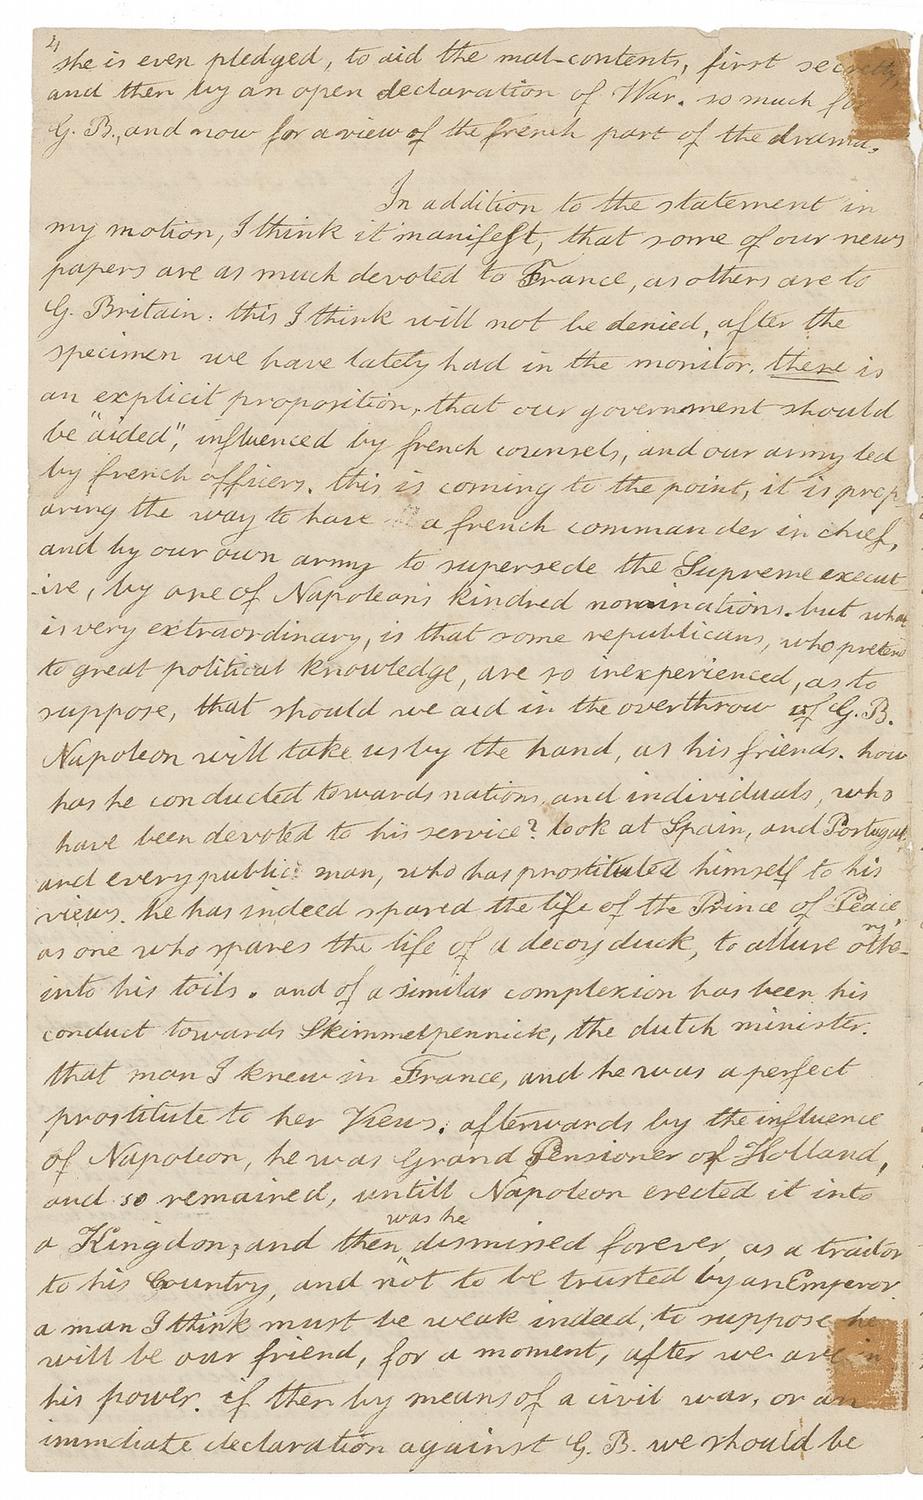 4
she is even pledged, to aid the mal-contents, first secretly,
and then by an open declaration of War. so much for
G. B., and now for a view of the french part of the drama.
In addition to the statement in
my motion, I think it manifest, that some of our news
papers are as much devoted to France, as others are to
G. Britain. this I think will not be denied, after the
specimen we have lately had in the monitor. there is
an explicit proposition, that our government should
be "aided", influenced by french counsels, and our army led
by french officers. this is coming to the point, it is prep
aring the way to have a french commander in chief,
and by our own army to supersede the Supreme execut
-ive, by one of Napoleon's kindred nominations. but what
is very extraordinary, is that some republicans, who pretend
to great political knowledge, are so inexperienced, as to
suppose, that should we aid in the overthrow of G. B.
Napoleon will take us by the hand, as his friends. how
has he conducted towards nations and individuals, who
have been devoted to his service? look at Spain, and Portugal,
and every public man, who has prostituted himself to his
views. he has indeed spared the life of the Prince of Peace,
as one who spares the life of a decoy duck, to allure others
into his toils. and of a similar complexion has been his
conduct towards Skimmelpennick, the dutch minister.
that man I knew in France, and he was a perfect
prostitute to her Views. afterwards by the influence
of Napoleon, he was Grand Pensioner of Holland,
and so remained, untill Napoleon erected it into
a Kingdon, and then was he dismissed forever, as a traitor
to his Country, and not to be trusted by an Emperor.
a man I think must be weak indeed, to suppose he
will be our friend, for a moment, after we are in
his power. if then by means of a civil war, or an
immediate declaration against G. B. we should be